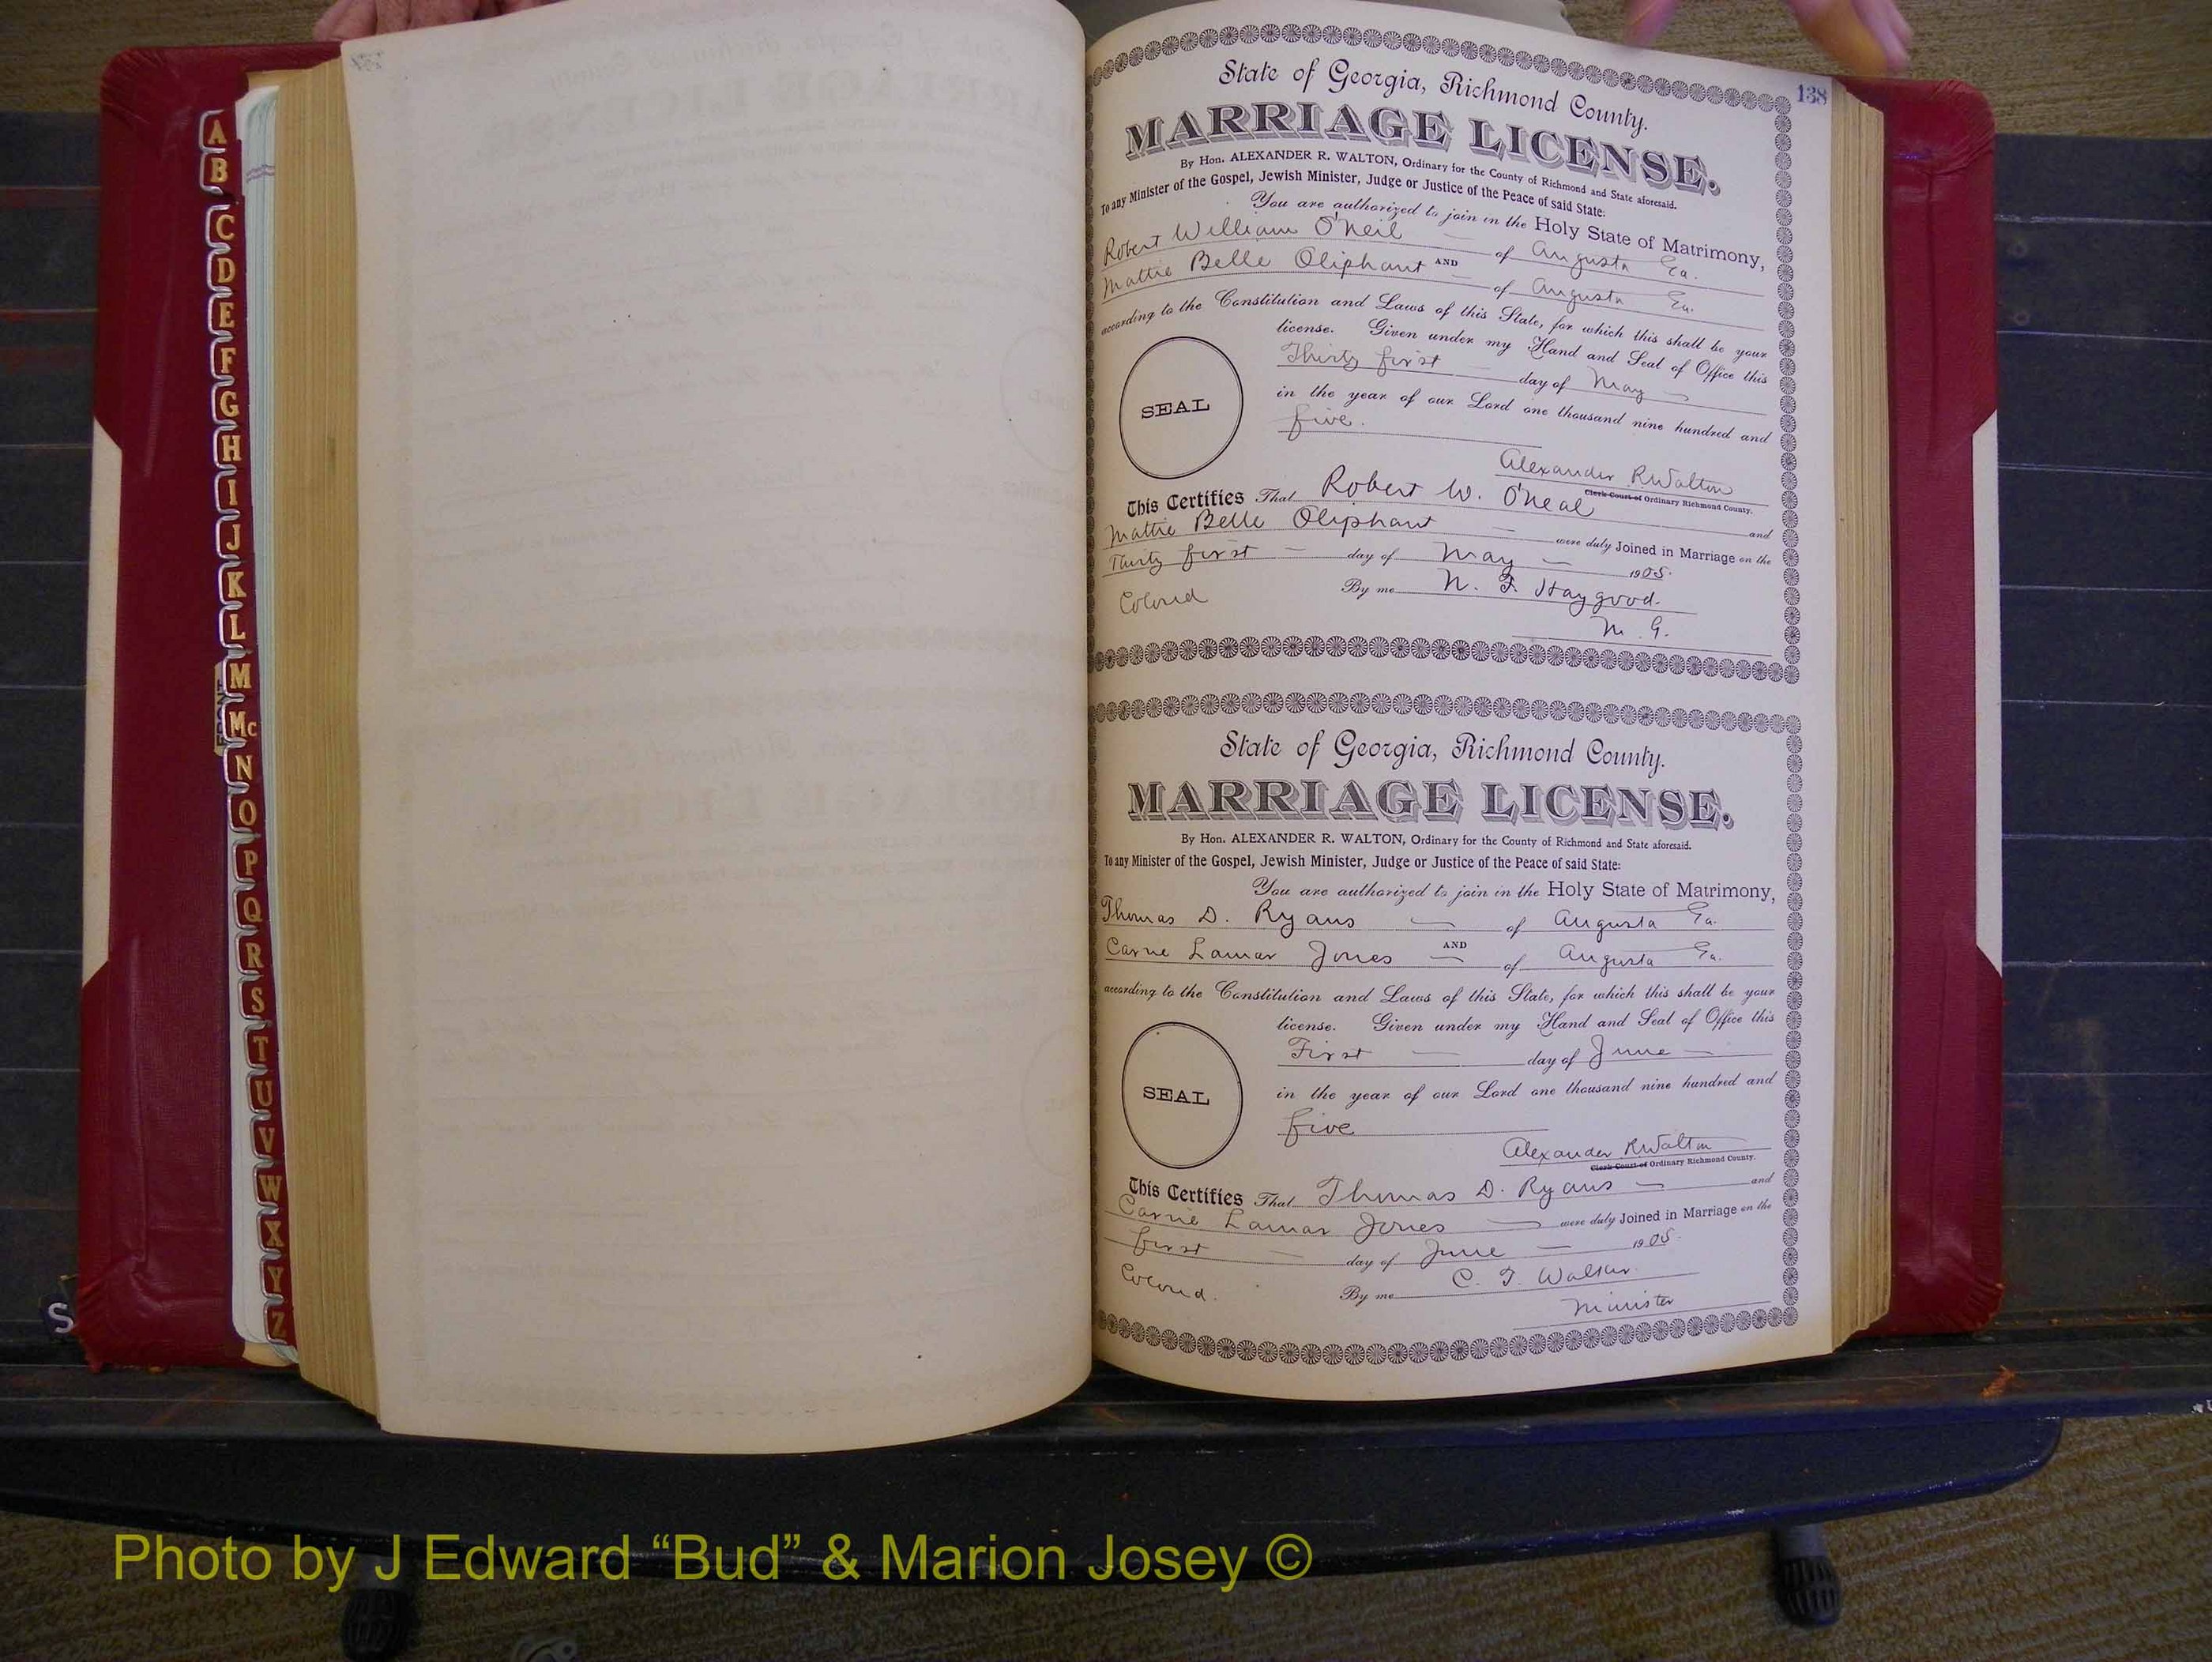 A
B
C
D
E
F
G
H
I
J
K
L
M
Mc
N
O
P
Q
R
S
T
U
V
W
X
Y
Z
S
138
State of Georgia, Richmond County.
MARRIAGE LICENSE.
By Hon. ALEXANDER R. WALTON, Ordinary for the County of Richmond and State aforesaid.
To any Minister of the Gospel, Jewish Minister, Judge or Justice of the Peace of said State:
You are authorized to join in the Holy State of Matrimony,
Robert William O'Neil of Augusta Ga.
AND
Mattie Belle Oliphant of Augusta Ga.
according to the Constitution and Laws of this State, for which this shall be your
license. Given under my Hand and Seal of Office this
Thirty first day of May
in the year of our Lord one thousand nine hundred and
five.
SEAL
Alexander R Walton
Clerk Court of Ordinary Richmond County.
This Certifies That Robert W. O'Neal and
Mattie Belle Oliphant were duly Joined in Marriage on the
Thirty first day of May 1905.
Colored By me N. F. Haygood.
M. G.
State of Georgia, Richmond County.
MARRIAGE LICENSE.
By Hon. ALEXANDER R. WALTON, Ordinary for the County of Richmond and State aforesaid.
To any Minister of the Gospel, Jewish Minister, Judge or Justice of the Peace of said State:
You are authorized to join in the Holy State of Matrimony,
Thomas D. Ryans of Augusta Ga.
AND
Carrie Lamar Jones of Augusta Ga.
according to the Constitution and Laws of this State, for which this shall be your
license. Given under my Hand and Seal of Office this
First day of June
in the year of our Lord one thousand nine hundred and
five
SEAL
Alexander R Walton
Clerk Court of Ordinary Richmond County.
This Certifies That Thomas D. Ryans and
Carrie Lamar Jones were duly Joined in Marriage on the
first day of June 1905.
Colored. By me C. T. Walker.
Minister
Photo by J Edward “Bud” & Marion Josey ©